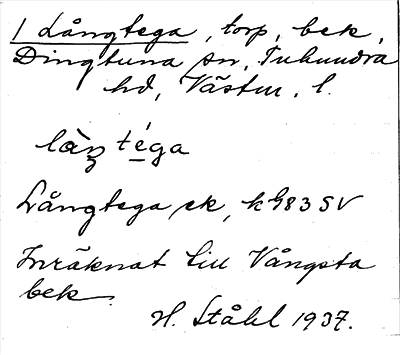 1 Långtega, torp, bek,
Dingtuna sn, Tuhundra
hd, Västm. l.
làŋ téga
Långtega ek, k 983 SV
Inräknat till Vångsta
bek.
H. Ståhl 1937.